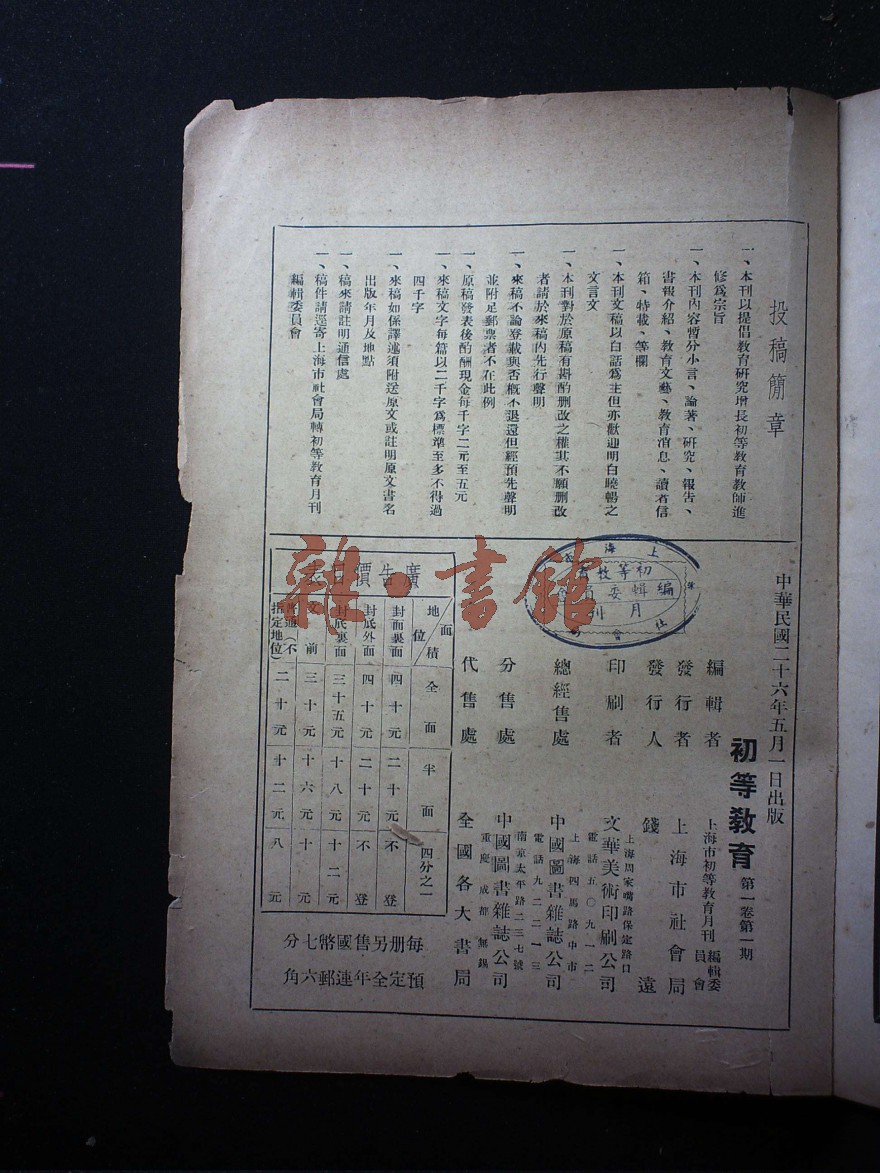 投稿簡章
一、本刊以提倡教育研究增長初等教育教師進
修為宗旨
一、本刊內容暫分小言、論著、研究、報告、
書報介紹、教育文藝、教育消息、讀者信
箱、特載、等欄
一、本刊文稿以白話為主但亦歡迎明白曉暢之
文言文
一、本刊對於原稿有斟酌刪改之權其不願刪改
者請於來稿內先行聲明
一、來稿不論登載與否概不退還但經預先聲明
並附足郵票者不在此例
一、原稿發表後酌酬現金每千字二元至五元
一、來稿文字每篇以二千字為標準至多不得過
四千字
一、來稿如係譯述須附送原文或註明原文書名
出版年月及地點
一、稿來請註明通信處
一、稿件請逕寄上海市社會局轉初等教育月刊
編輯委員會
中華民國二十六年五月一日出版
初等教育 第一卷第一期
編輯者 上海市初等教育月刊編輯委員會
發行者 上海市社會局
發行人 錢遠
印刷者 文華美術印刷公司
上海周家嘴路保定路口
電話五〇九一二
總經售處 中國圖書雜誌公司
上海四馬路中市
電話九二二一三
分售處 中國圖書雜誌公司
南京太平路二三七號
重慶 成都 無錫
代售處 全國各大書局
廣告價目表
地位 面積 全面 半面 四分之一
封面裏面 四十元 二十元 不登
封底外面 四十元 二十元 不登
封底裏面 三十五元 十八元 十二元
文前 三十元 十六元 十元
普通(不指定地位) 二十元 十二元 八元
每册另售國幣七分
預定全年連郵六角
雜·書館